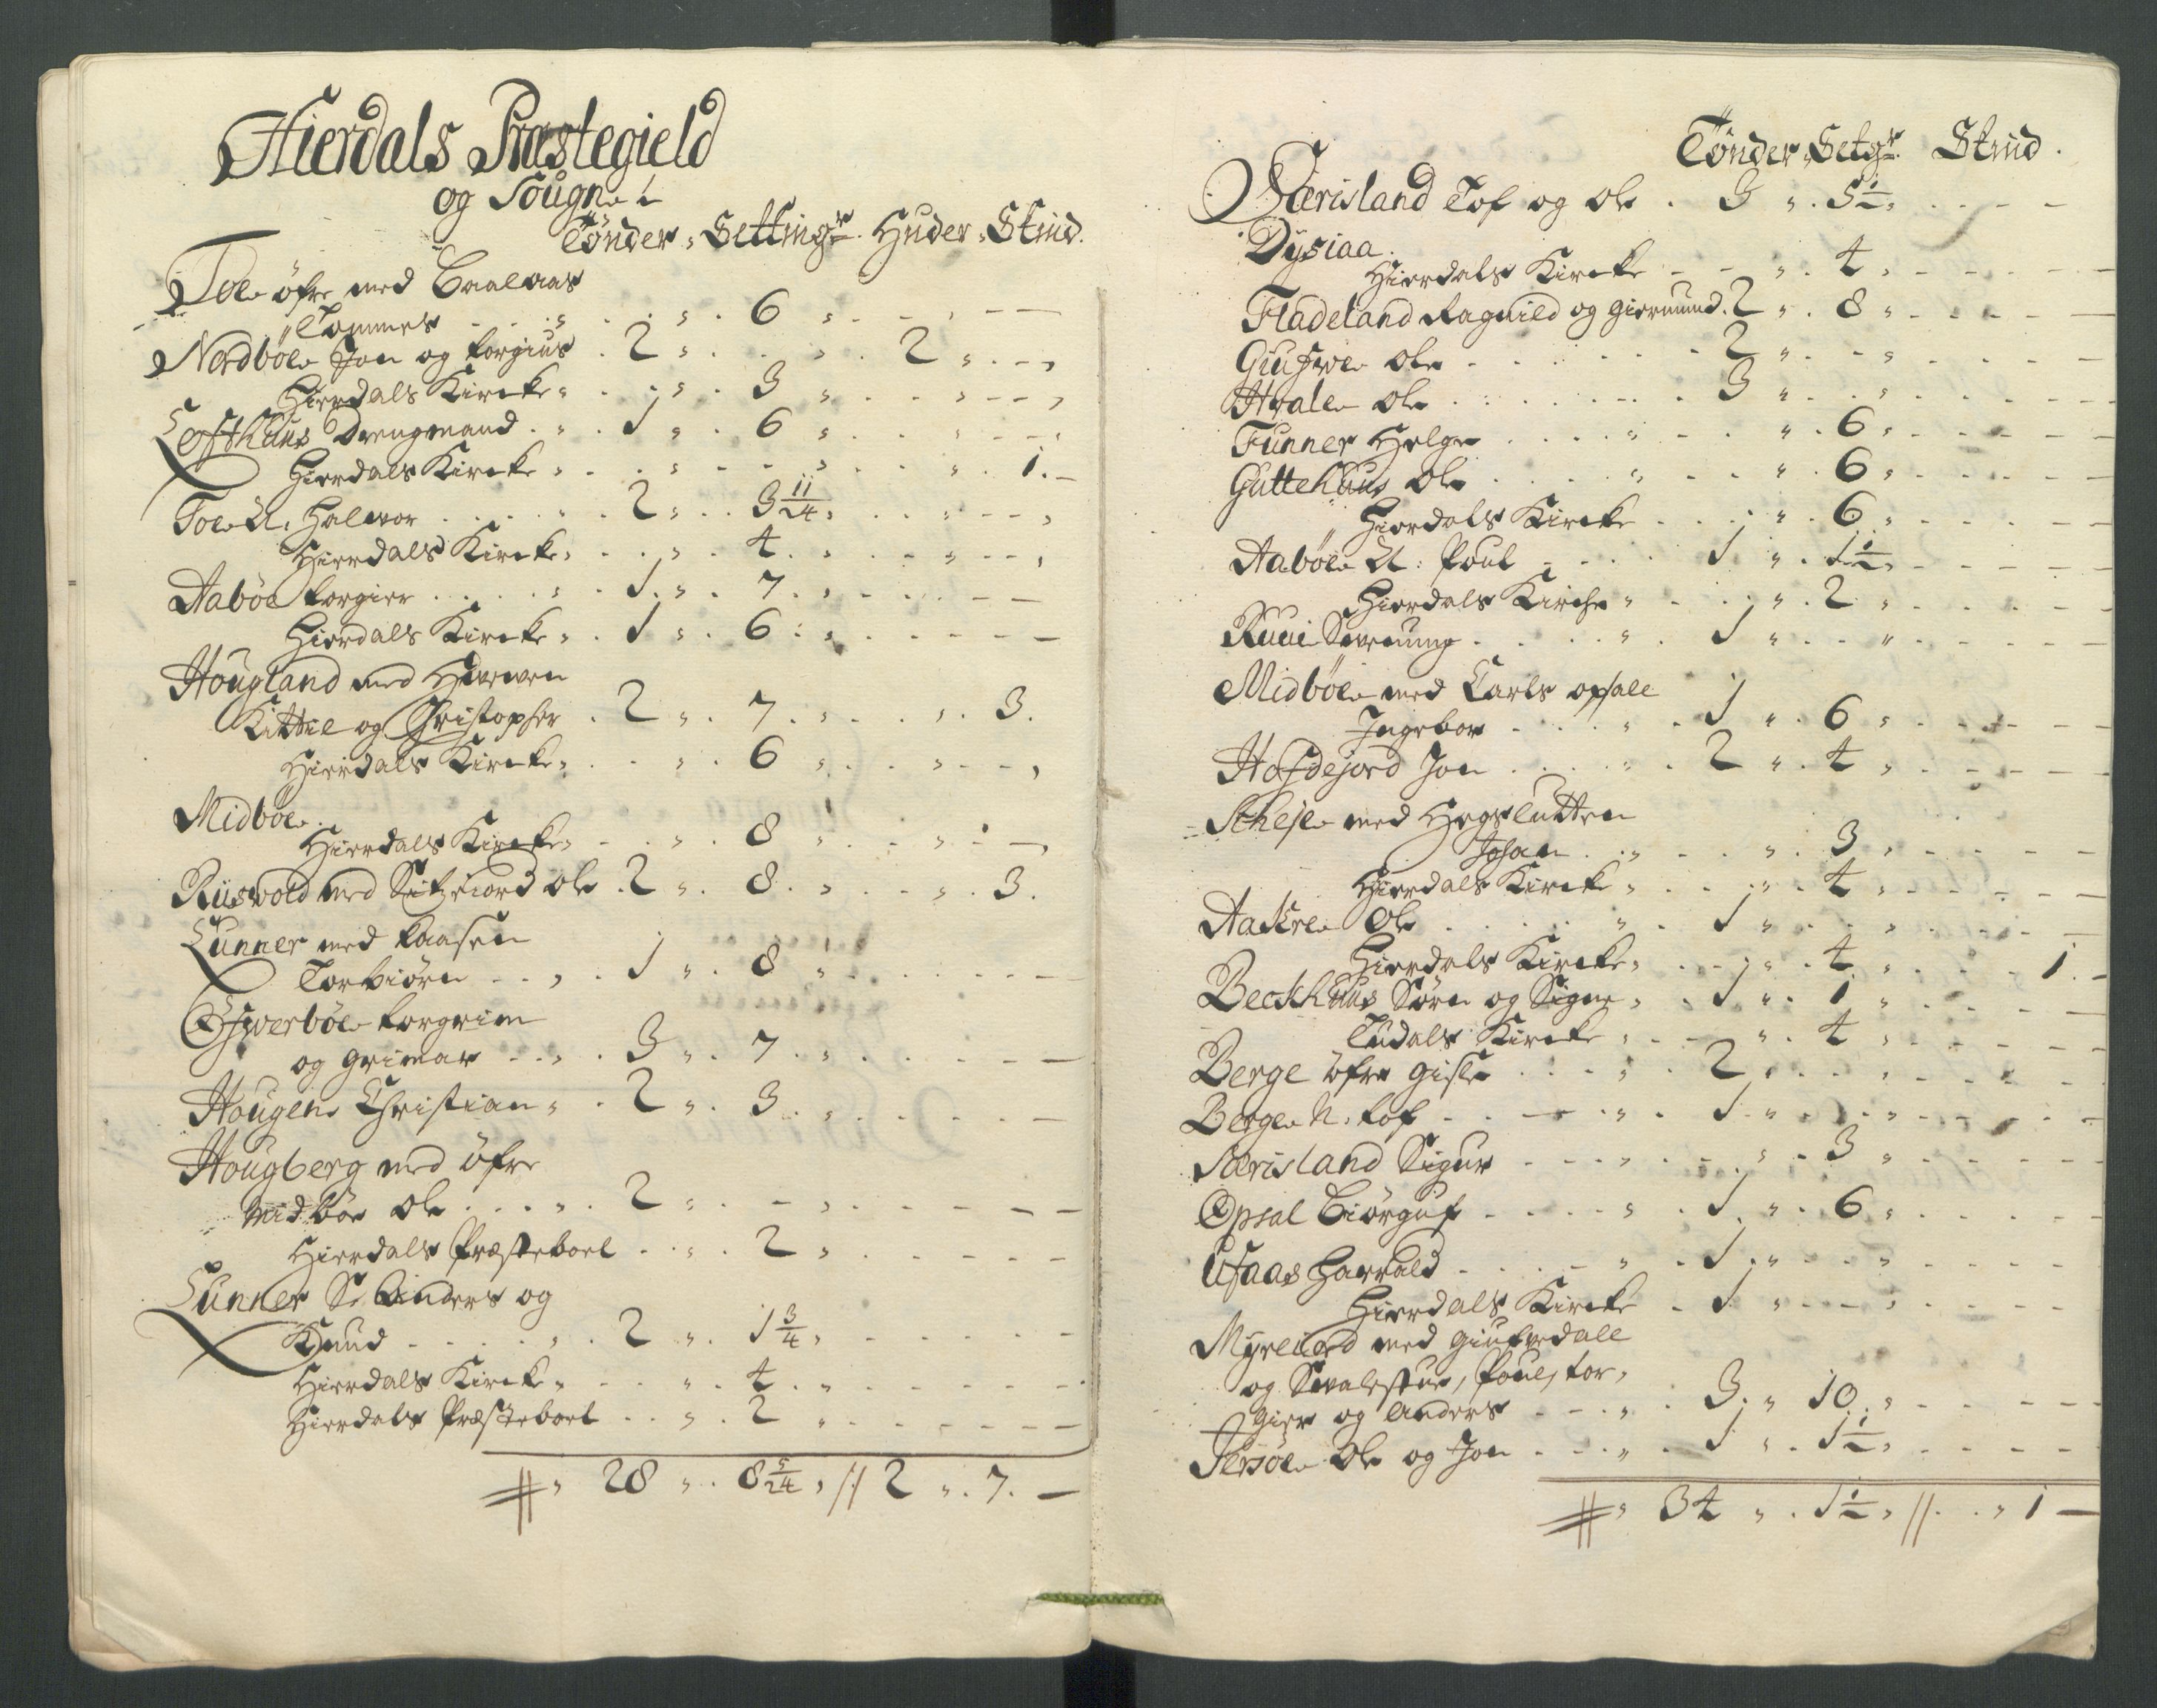 Hierdals Præstegield
og Sougne
Tönder, Setting:r Huder, Skind.
Toe öfre med Baalaas
Tommes . . 6
Nordböe Jon og Torgius . 2 . . 2
Hierdals Kircke . . 3
Lofthuus Drengmand . . 1 . 6
Hierdals Kircke . . . . 1. –
Toe N. Halvor . . 2 . 3 11/24
Hierdals Kircke . . 4
Aaböe Torgier . . 1 . 7
Hierdals Kircke . 1 . 6
Hougland med
Kittil og Christopher . 2 . 7 . . 3.
Hierdals Kircke . . 6
Midböe
Hierdals Kircke . . 8
Riisvold med Ole . 2 . 8 . . 3.
Lunner med Aasen
Torbiörn . . 1 . 8
Ofverböe Torgrim
og Grimar . . 3 . 7
Hougen Christian . 2 . 3
Hougberg med öfre
Midböe Ole . . 2
Hierdals Præsteboel . . 2
Lunner S. Anders og
Knud . . 2 . 1 3/4
Hierdals Kircke . . 4
Hierdals Præsteboel . . 2
28 . 8 5/24 // 2 . 7. –
Tönder, Setg:r Skind.
Særisland Tof og Ole . 3 . 5 1/2
Dysiaa.
Hierdals Kircke . . 4
Fladeland Ragnild og Giermund. 2 . 8
Giufwe Ole . . 2
Hvale Ole . . 3
Funner Helge . . 6
Guttehuus Ole . . 6
Hierdals Kircke . . 6
Aaböe N: Poul . . 1 . 1 1/2
Hierdals Kirche . . 2
Ruui Svenung . . 1
Midböe med Carls opsall
Ingebor . . 1 . 6
Hofdejord Jon . . 2 . 4
Skeje med Hegslutten
Johan . . 3
Hierdals Kircke . . 4
Aakre Ole . . 1
Hierdals Kircke . . 4 . . 1. –
Beckhuus Sörn og Signe . 1 . 1
Tudals Kircke . . 4
Berge öfre Gisle . . 2
Berge N. Tof . . 1
Særisland Sigur . . 3
Opsal Biörguf . . 1 . 6
Usaas Harrald . . 1
Hierdals Kircke . 1
Myreiord med Giufvedall
og Svalestue, Poul, Tor,
gier og Anders . . 3 . 10
Persöe Ole og Jon . . 1 . 1 1/2
34 . 1 1/2 // . . 1 –